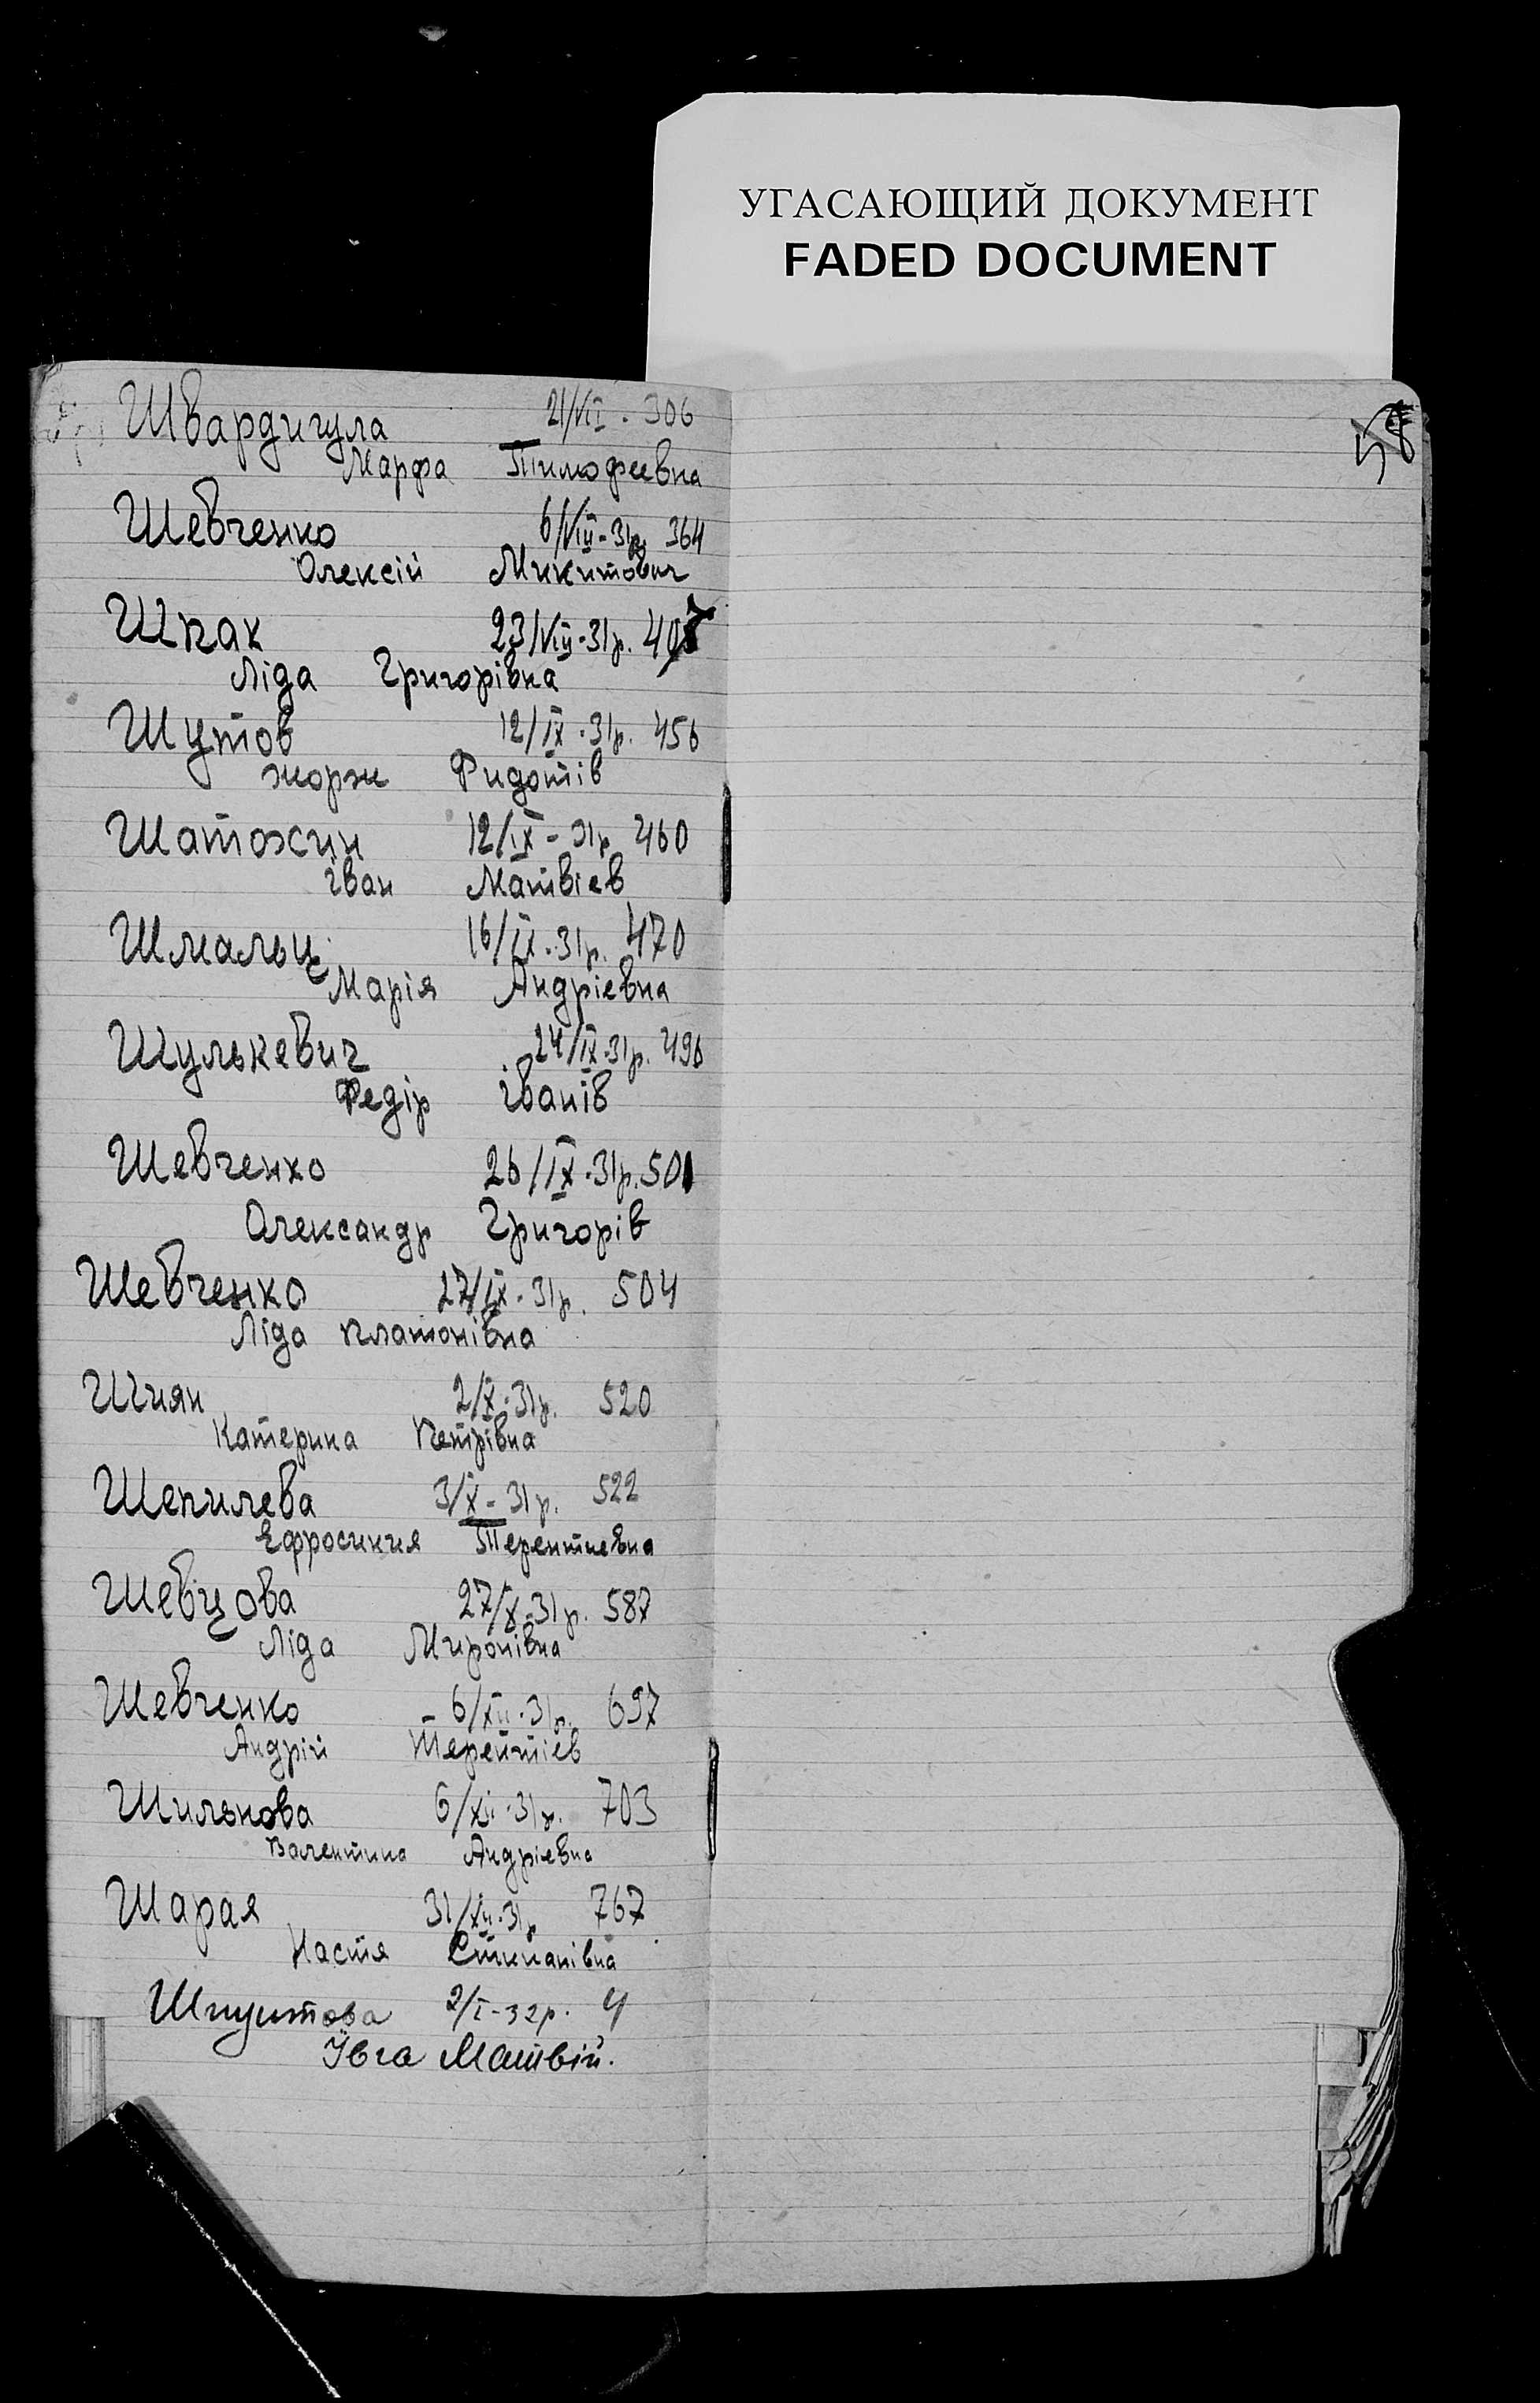 УГАСАЮЩИЙ ДОКУМЕНТ
FADED DOCUMENT
Швардигула 21/VII - 306
Марфа Тимофеевна
Шевченко 6/VIII-31р. 364
Олексій Микитович
Шпак 23/VIII-31р. 407
Ліда Григорівна
Шутов 12/IX-31р. 456
жорж Фидотів
Шатохин 12/IX-31р 460
Іван Матвіев
Шмальц 16/IX-31р. 470
Марія Андріевна
Шулькевич 24/IX-31р. 496
Федір Іванів
Шевченко 26/IX-31р. 501
Олександр Григорів
Шевченко 27/IX-31р. 504
Ліда Платонівна
Шиян 2/X-31р. 520
Катерина Петрівна
Шепилева 3/X-31р. 522
Ефросиния Терентиевна
Шевцова 27/X-31р. 587
Ліда Миронівна
Шевченко 6/XII-31р. 697
Андрій Терентіев
Шильнова 6/XII-31р. 703
Валентина Андріевна
Шарая 31/XII-31р 767
Настя Стипанівна
2/I-32р. 4
Ївга Матвій.
58